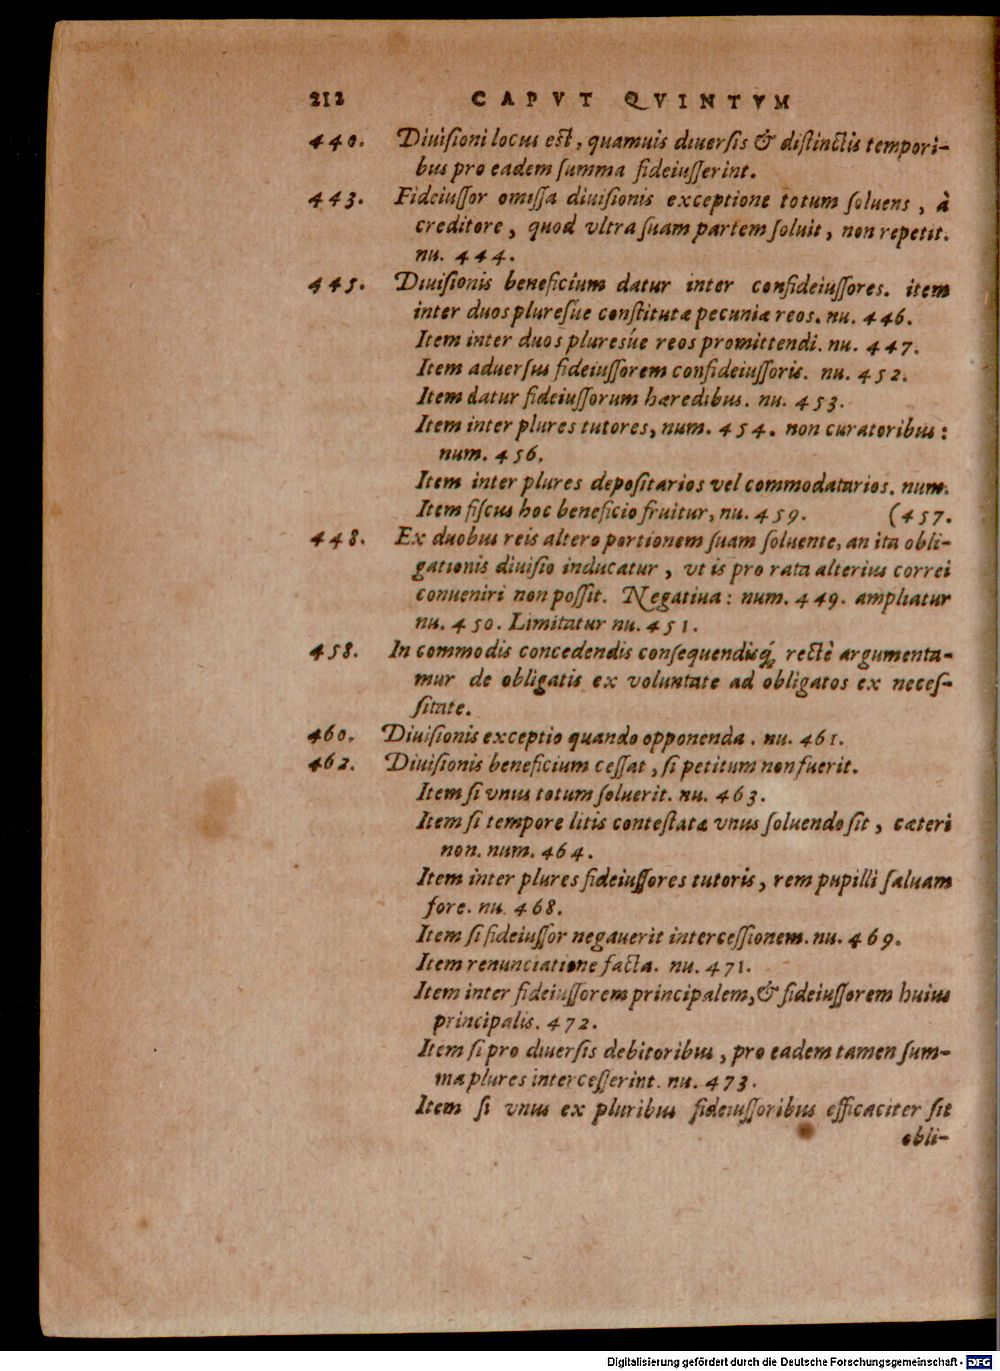 212 CAPVT QVINTVM
440. Diuiſioni locus eſt, quamuis diuerſis & diſtinctis tempori-
bus pro eadem ſumma fideiuſſerint.
443. Fideiuſſor omiſſa diuiſionis exceptione totum ſoluens, à
creditore, quod vltra ſuam partem ſoluit, non repetit.
nu. 444.
445. Diuiſionis beneficium datur inter confideiuſſores. item
inter duos pluresúe conſtitutæ pecuniæ reos. nu. 446.
Item inter duos pluresúe reos promittendi. nu. 447.
Item aduerſus fideiuſſorem confideiuſſoris. nu. 452.
Item datur fideiuſſorum hæredibus. nu. 453.
Item inter plures tutores, num. 454. non curatoribus:
num. 456.
Item inter plures depoſitarios vel commodatarios. num.
Item fiſcus hoc beneficio fruitur, nu. 459. (457.
448. Ex duobus reis altero portionem ſuam ſoluente, an ita obli-
gationis diuiſio inducatur, vt is pro rata alterius correi
conueniri non poſſit. Negatiua: num. 449. ampliatur
nu. 450. Limitatur nu. 451.
458. In commodis concedendis conſequendiſq́; rectè argumenta-
mur de obligatis ex voluntate ad obligatos ex neceſ-
ſitate.
460. Diuiſionis exceptio quando opponenda. nu. 461.
462. Diuiſionis beneficium ceſſat, ſi petitum non fuerit.
Item ſi vnus totum ſoluerit. nu. 463.
Item ſi tempore litis conteſtatæ vnus ſoluendo ſit, cæteri
non. num. 464.
Item inter plures fideiuſſores tutoris, rem pupilli ſaluam
fore. nu. 468.
Item ſi fideiuſſor negauerit interceſſionem. nu. 469.
Item renunciatione facta. nu. 471.
Item inter fideiuſſorem principalem, & fideiuſſorem huius
principalis. 472.
Item ſi pro diuerſis debitoribus, pro eadem tamen ſum-
ma plures interceſſerint. nu. 473.
Item ſi vnus ex pluribus fideiuſſoribus efficaciter ſit
obli-
Digitalisierung gefördert durch die Deutsche Forschungsgemeinschaft - DFG